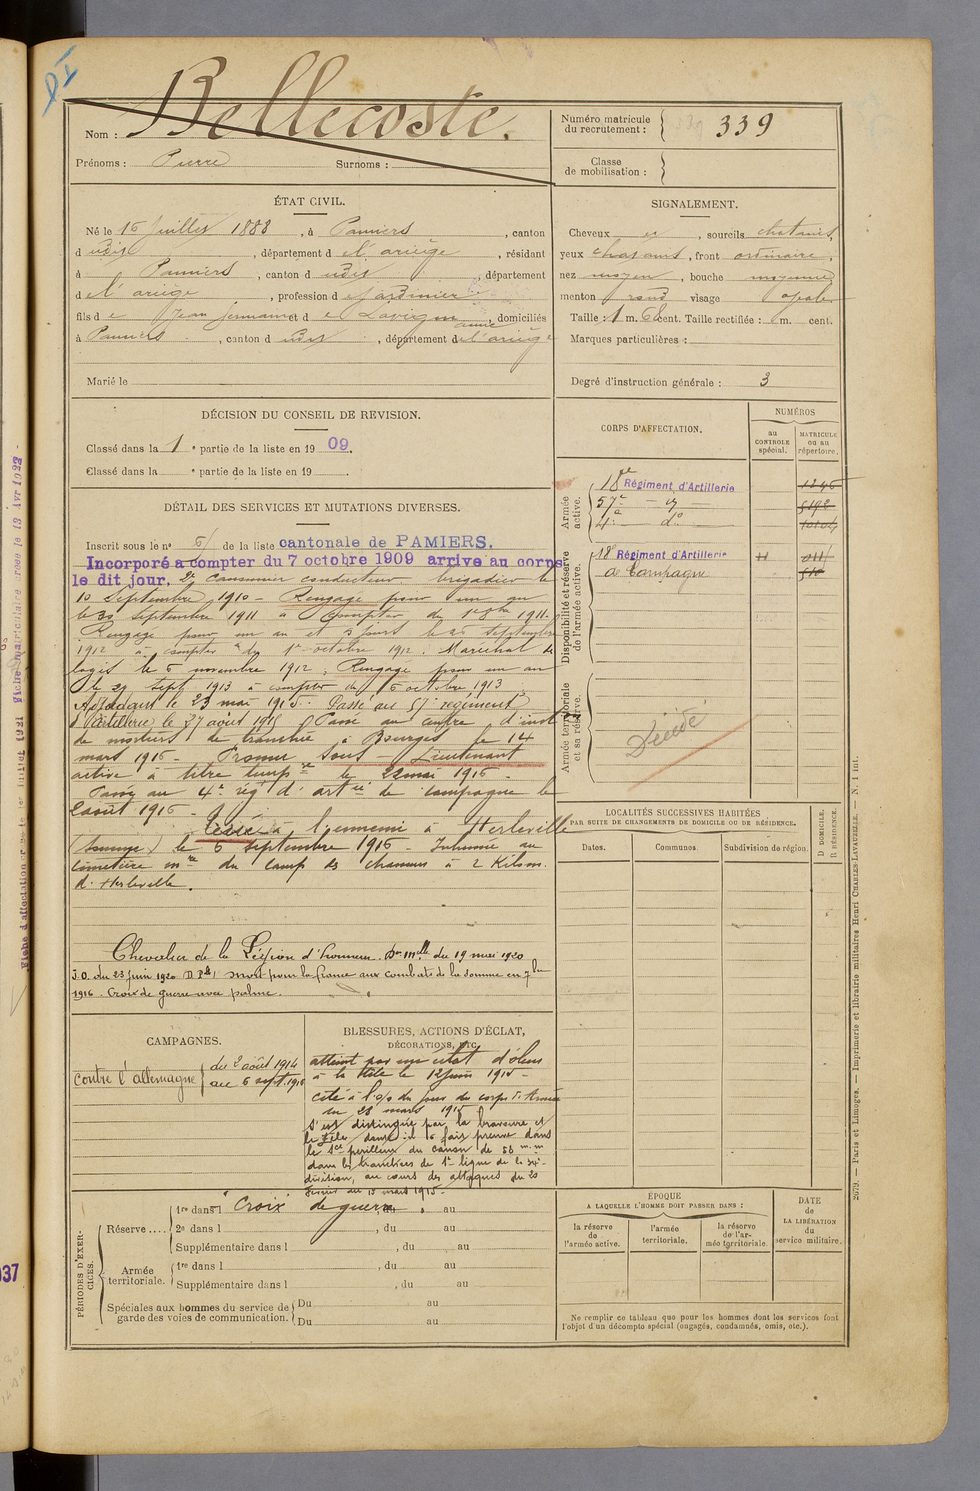 Bellecoste.
Nom :
Prénoms : Pierre Surnoms :
Numéro matricule du recrutement : 339
Classe de mobilisation :
ÉTAT CIVIL.
Né le 16 Juillet 1888, à Pamiers, canton
d udit, département d e l'ariège, résidant
à Pamiers, canton d udit, département
d e l'ariège, profession d e Jardinier
fils d e Jean Germain et d e Lavigne anne, domiciliés
à Pamiers, canton d udit, département d e l'ariège
Marié le
SIGNALEMENT.
Cheveux et, sourcils chatains,
yeux chatains, front ordinaire,
nez moyen, bouche moyenne
menton rond visage ovale
Taille : 1 m. 68 cent. Taille rectifiée : m. cent.
Marques particulières :
Degré d'instruction générale : 3
DÉCISION DU CONSEIL DE REVISION.
Classé dans la 1e partie de la liste en 1909.
Classé dans la e partie de la liste en 19
DÉTAIL DES SERVICES ET MUTATIONS DIVERSES.
Inscrit sous le n° 5 de la liste cantonale de PAMIERS.
Incorporé a compter du 7 octobre 1909 arrive au corps
le dit jour. 2e canonnier conducteur brigadier le
10 Septembre 1910 - Rengagé pour un an
le 30 septembre 1911 à compter du 1er 8bre 1911.
Rengagé pour un an et 5 jours le septembre
1912 à compter du 1er octobre 1912. Maréchal de
logis le 5 novembre 1912. Rengagé pour un an
le 29 Sept 1913 à compter du 6 octobre 1913
Adjudant le 23 mai 1915. Passé au 57e régiment
d'artillerie le 27 août 1915 Passé au centre d'inst on
de mortiers de tranchée à Bourges le 14
mars 1916 - Promu Sous Lieutenant
active à titre temp re le 22 mai 1916 -
Passé au 4e rég t d'art ie de campagne le
2 août 1916 -
à l'ennemi à Herleville
(Somme) le 6 septembre 1916 - Inhumé au
cimetière m re du camp des chasseurs à 2 Kilom.
d'Herleville.
Chevalier de la Légion d'honneur. du 19 mai 1920
J.O. du 23 juin 1920 mort pour la france aux combats de la somme en 7bre
1916. Croix de guerre avec palme.
CORPS D'AFFECTATION.
NUMÉROS
au CONTROLE spécial.
MATRICULE ou au répertoire.
Armée active.
18e Régiment d'Artillerie 1246
57e — d° — 5192
4e — d° — 10104
Disponibilité et réserve de l'armée active.
18e Régiment d'Artillerie 11 011
de Campagne 510
Armée territoriale et sa réserve.
Décédé
LOCALITÉS SUCCESSIVES HABITÉES
PAR SUITE DE CHANGEMENTS DE DOMICILE OU DE RÉSIDENCE.
Dates. Communes. Subdivision de région. D DOMICILE. R RÉSIDENCE.
CAMPAGNES.
contre l'allemagne du 2 août 1914
au 6 sept. 1916
BLESSURES, ACTIONS D'ÉCLAT,
DÉCORATIONS, ETC.
atteint par un éclat d'obus
à la tête le 12 juin 1915 -
cité à l'o/o du jour du corps d'Armée
du 28 mars 1915
S'est distingué par la bravoure et
le zèle dont il a fait preuve dans
le sce périlleux du canon de 58 m.m
dans les tranchées de 1e ligne de la 34e
division, au cours des attaques du 20
février au 15 mars 1915 -
Croix de guerre
PÉRIODES D'EXERCICES.
Réserve .... 1re dans l , du au
2e dans l , du au
Supplémentaire dans l , du au
Armée territoriale. 1re dans l , du au
Supplémentaire dans l , du au
Spéciales aux hommes du service de garde des voies de communication. Du au
Du au
ÉPOQUE
A LAQUELLE L'HOMME DOIT PASSER DANS :
la réserve de l'armée active.
l'armée territoriale.
la réserve de l'armée territoriale.
DATE de LA LIBÉRATION du service militaire.
Ne remplir ce tableau que pour les hommes dont les services font
l'objet d'un décompte spécial (engagés, condamnés, omis, etc.).
2079. — Paris et Limoges. — Imprimerie et librairie militaires Henri CHARLES-LAVAUZELLE. — N. 1 int.
037